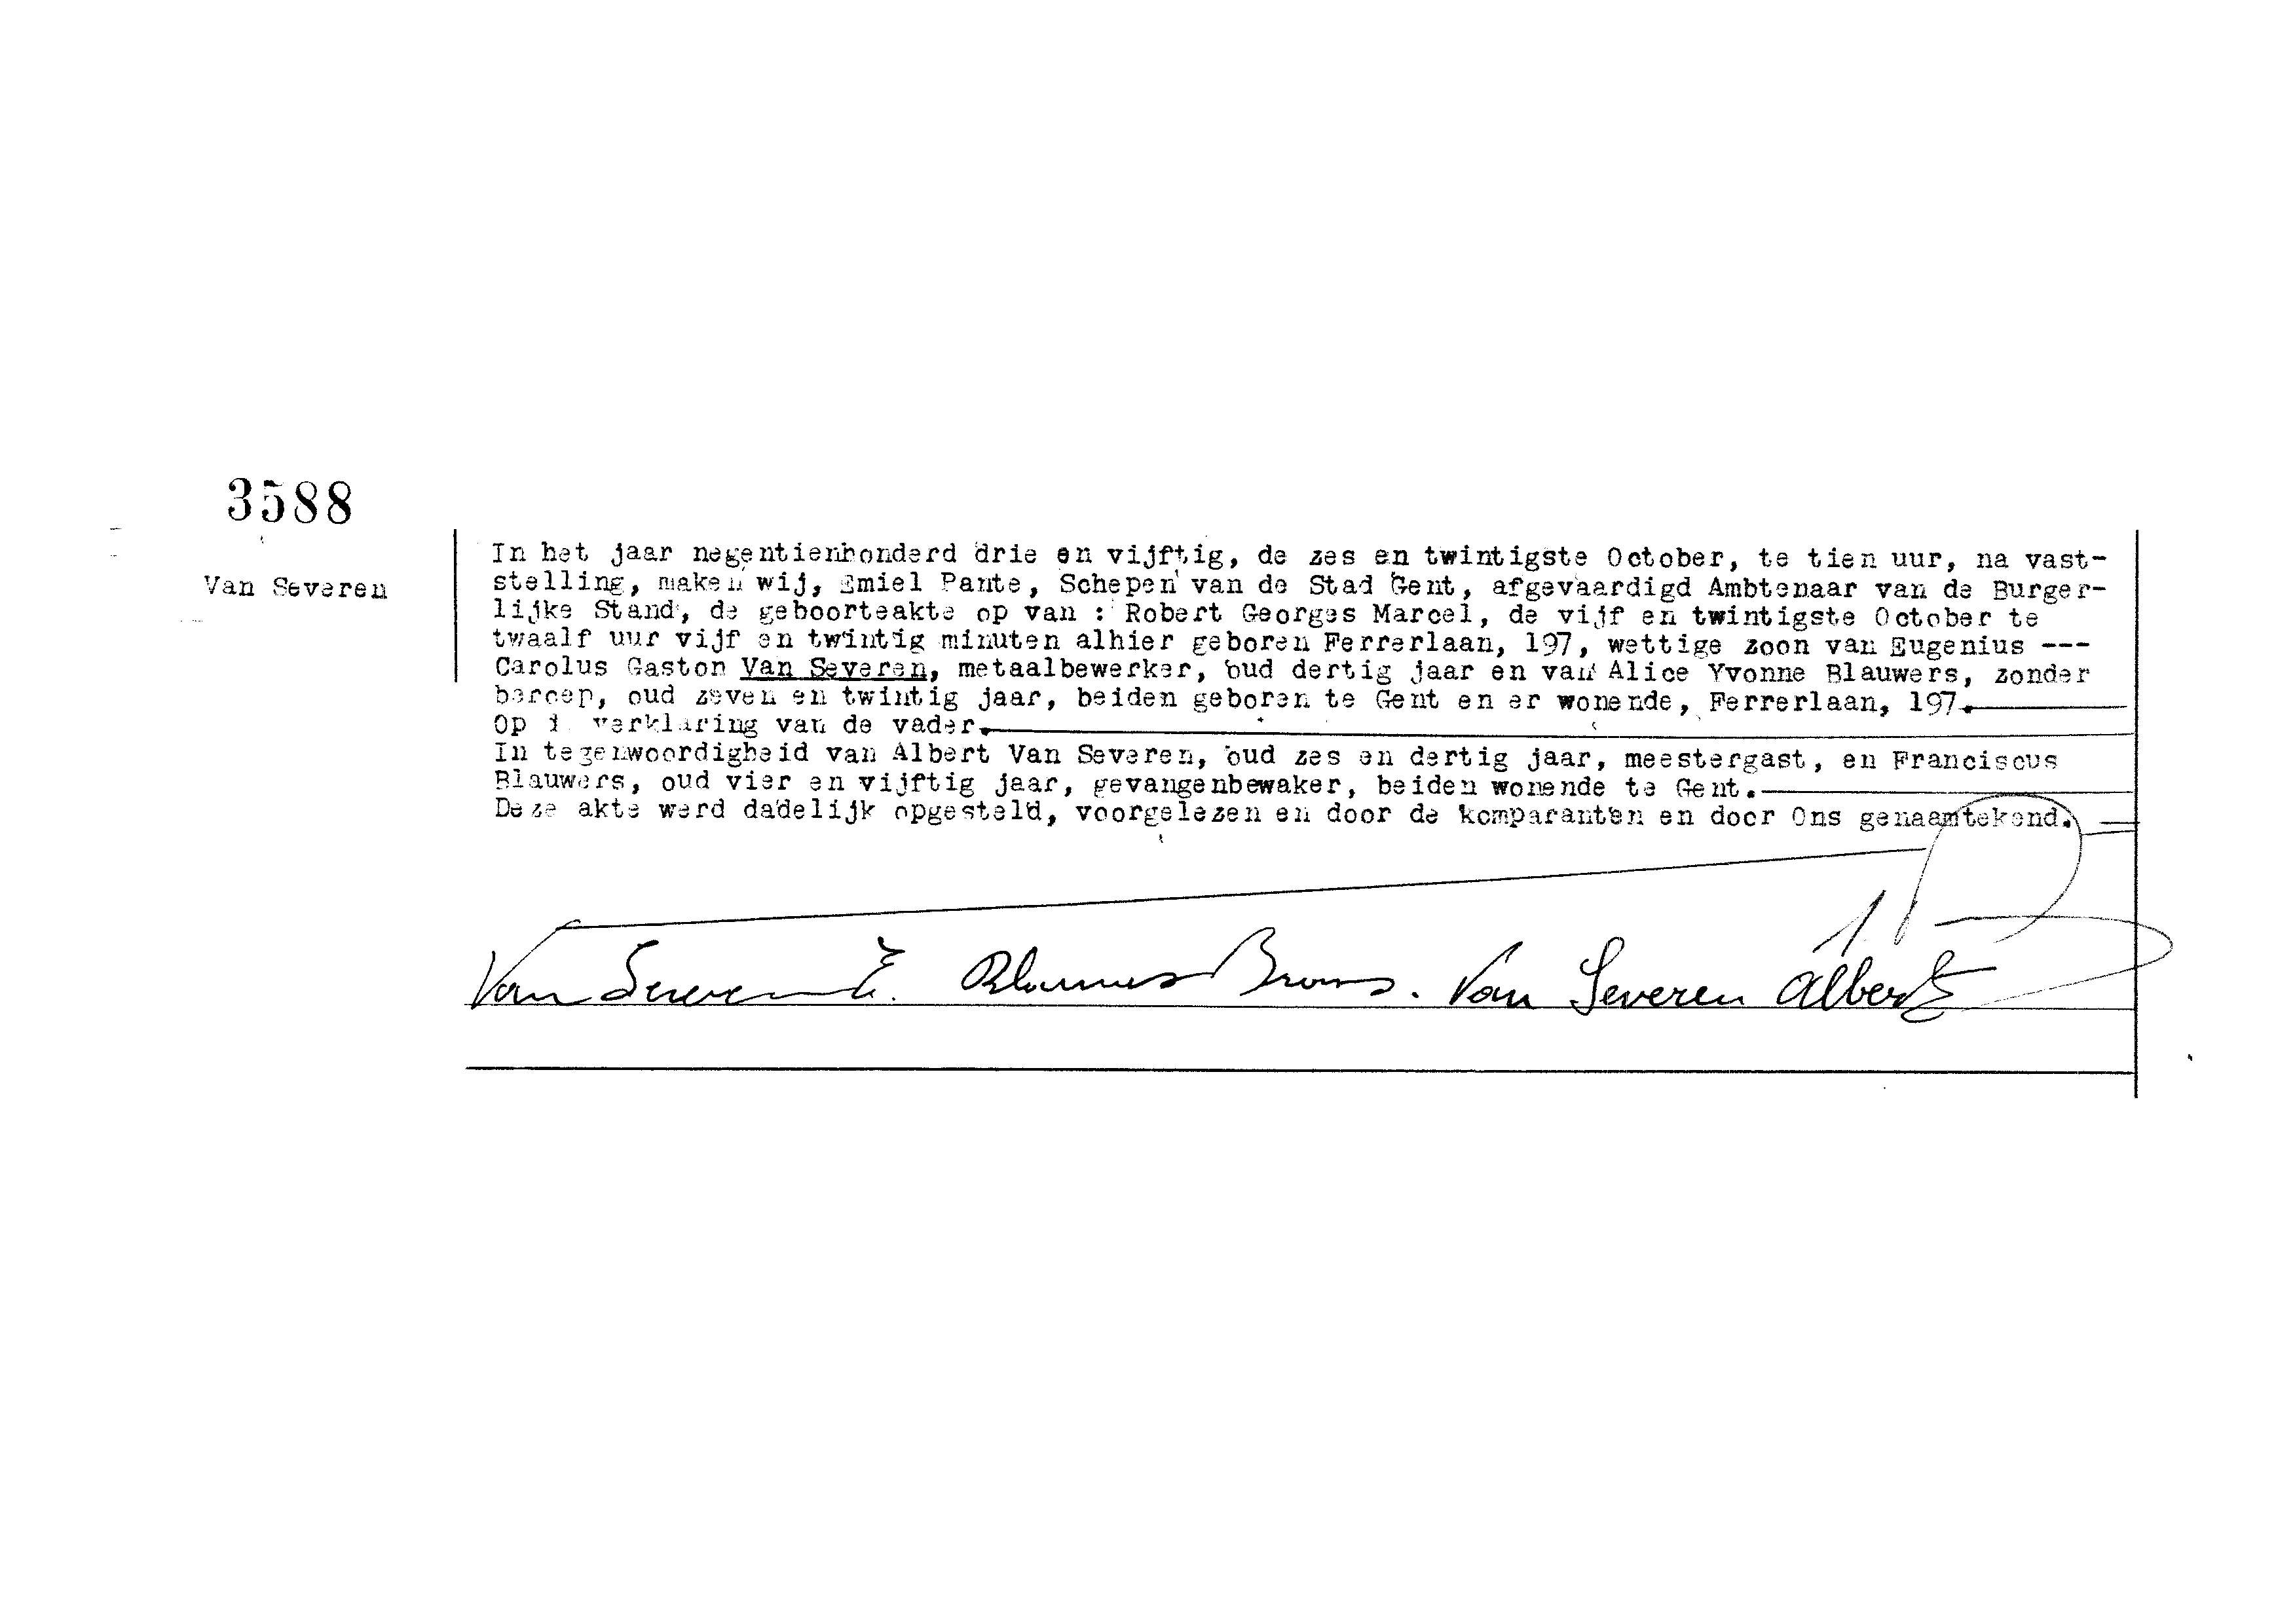 3588
Van Severen
In het jaar negentienhonderd drie en vijftig, de zes en twintigste October, te tien uur, na vast-
stelling, maken wij, Emiel Pante, Schepen van de Stad Gent, afgevaardigd Ambtenaar van de Burger-
lijke Stand, de geboorteakte op van : Robert Georges Marcel, de vijf en twintigste October te
twaalf uur vijf en twintig minuten alhier geboren Ferrerlaan, 197, wettige zoon van Eugenius ---
Carolus Gaston Van Severen, metaalbewerker, oud dertig jaar en van Alice Yvonne Blauwers, zonder
beroep, oud zeven en twintig jaar, beiden geboren te Gent en er wonende, Ferrerlaan, 197.
Op verklaring van de vader.
In tegenwoordigheid van Albert Van Severen, oud zes en dertig jaar, meestergast, en Franciscus
Blauwers, oud vier en vijftig jaar, gevangenbewaker, beiden wonende te Gent.
Deze akte werd dadelijk opgesteld, voorgelezen en door de komparanten en door Ons genaamtekend.
Van Severen E. Blauwers . Van Severen Albert